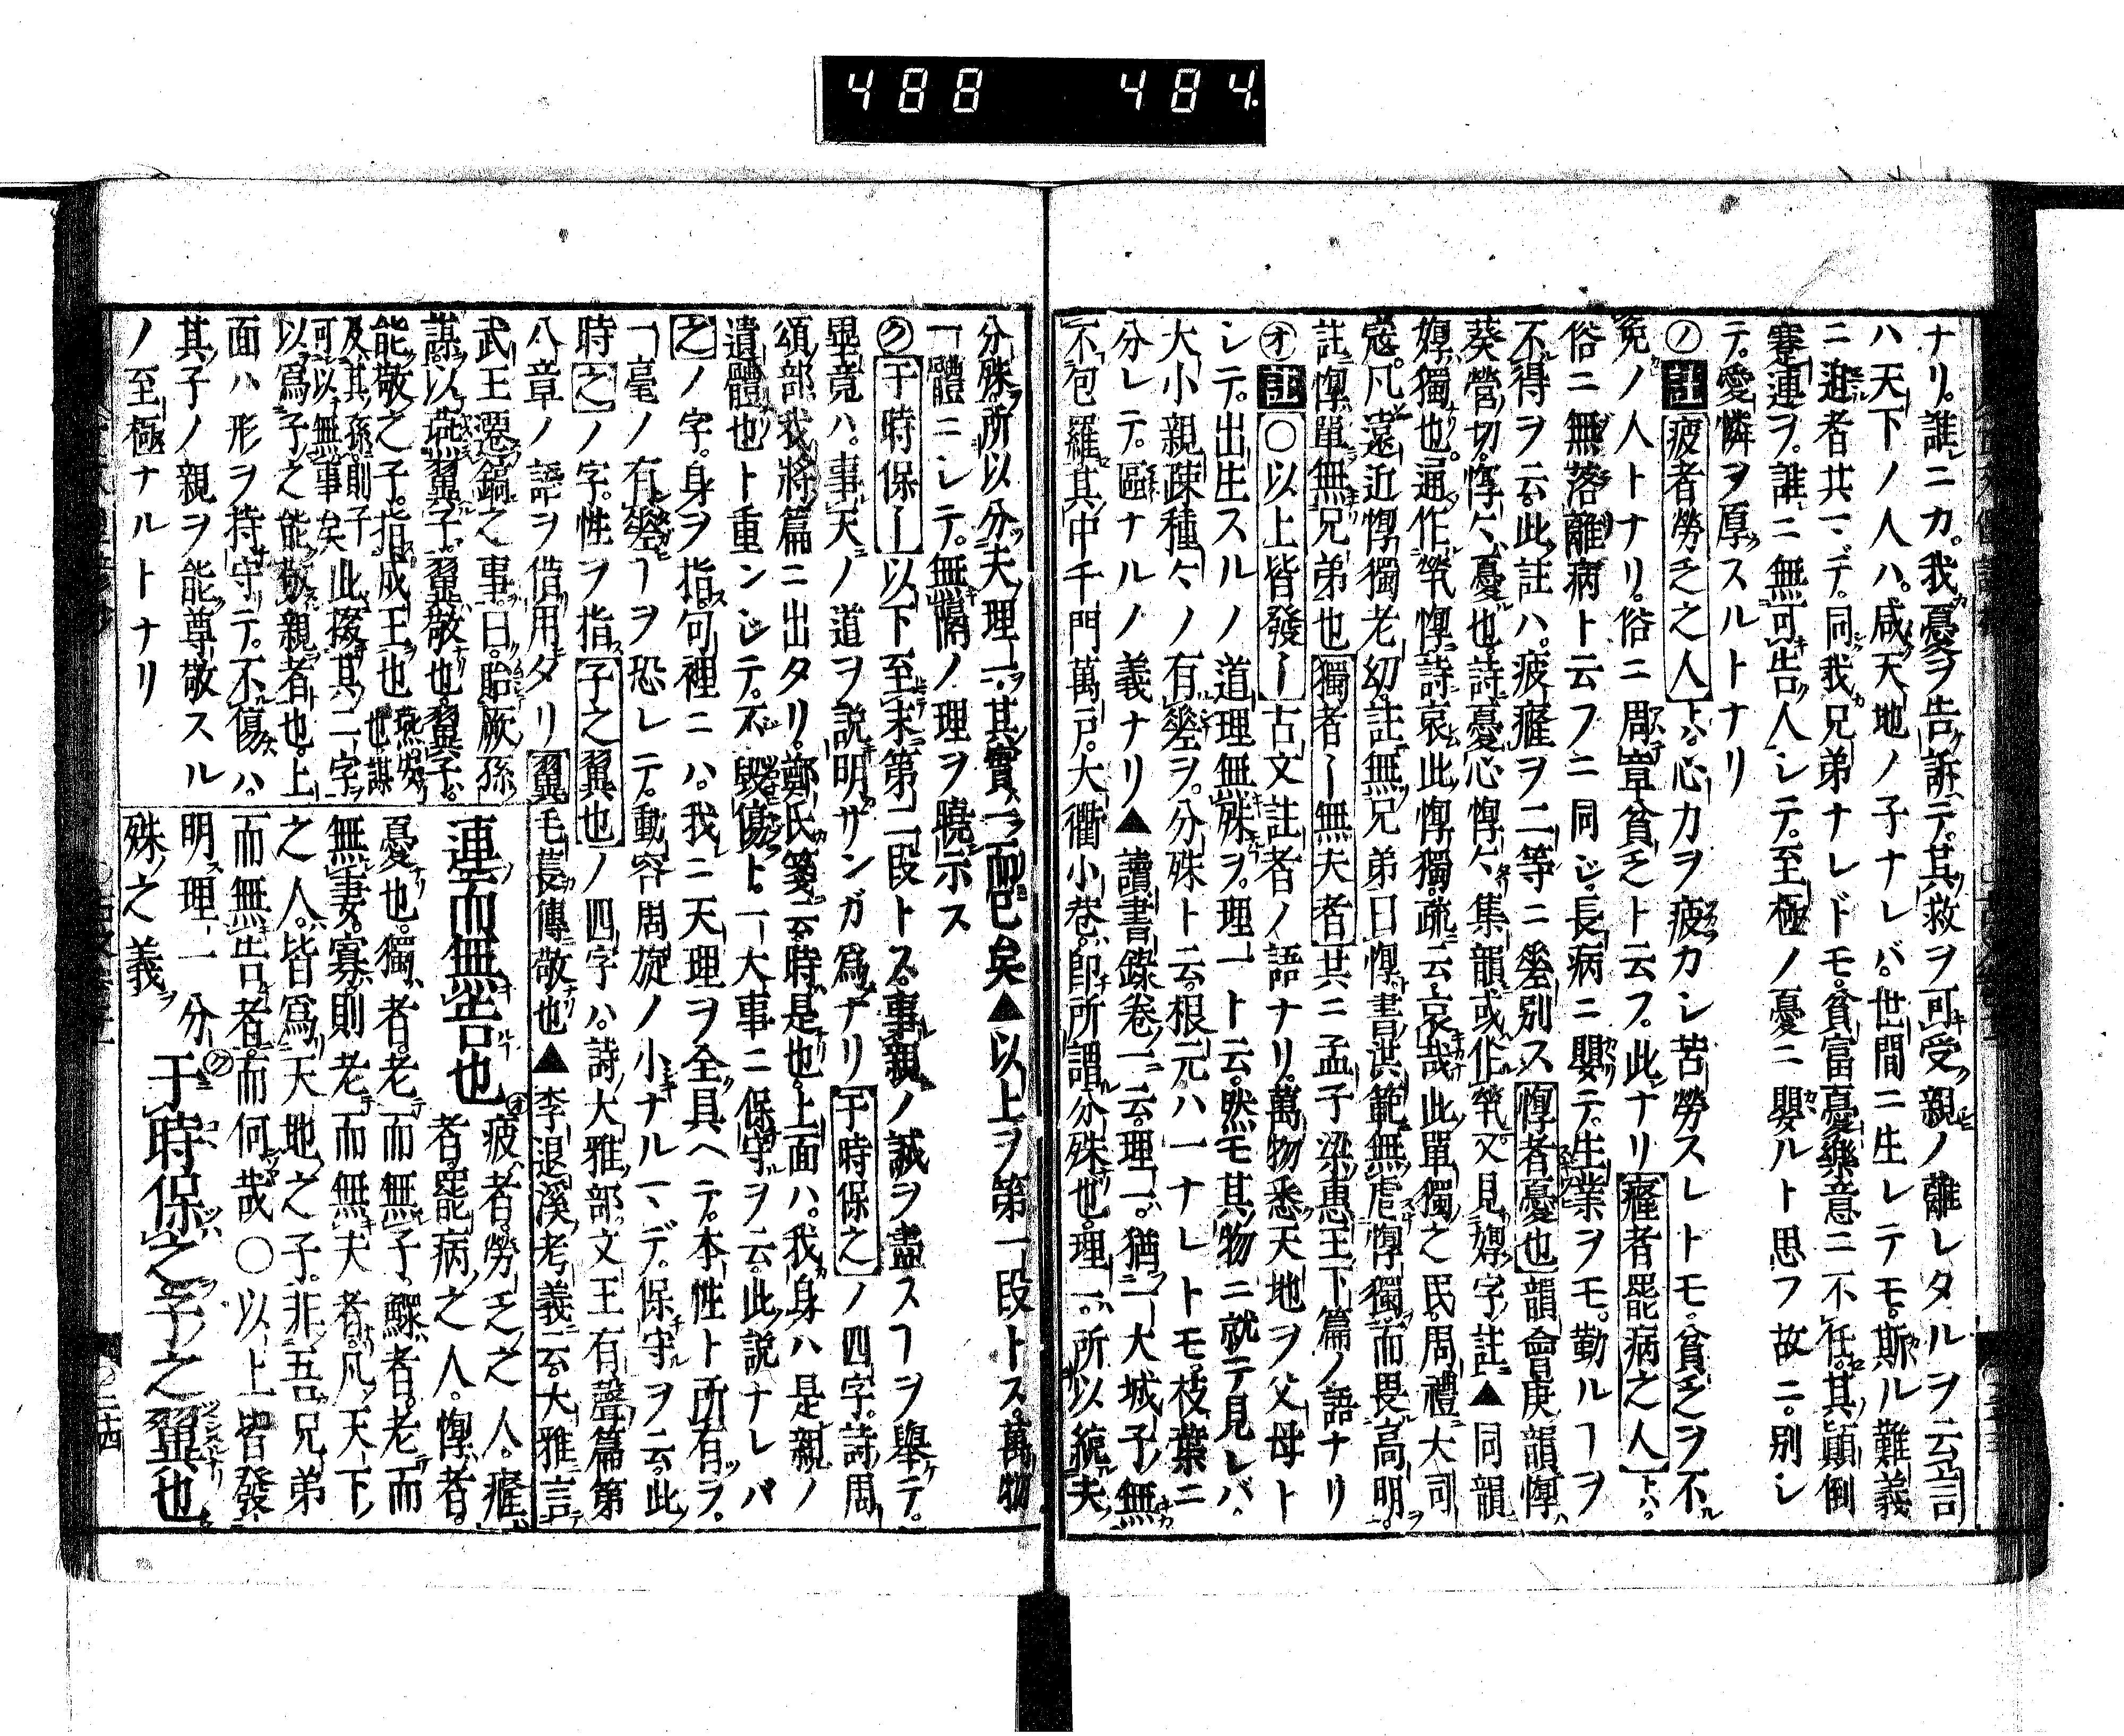 488 484
ナリ。誰ニカ。我憂ヲ告訴テ。其救ヲ可受。親ノ離レタルヲ云。言
ハ天下ノ人ハ。咸天地ノ子ナレバ。世間ニ生レテモ。斯ル難義
ニ迫者共マデ。同我兄弟ナレドモ。貧富憂樂意ニ不任。其顚倒
蹇連ヲ。誰ニ無可告人シテ。至極ノ憂ニ嬰ルト思フ故ニ。別シ
テ。愛憐ヲ厚スルトナリ
㋨註 疲者勞乏之人トハ。心力ヲ疲カシ苦勞スレトモ。貧乏ヲ不
免ノ人トナリ。俗ニ周章貧乏ト云フ。此ナリ 癃者罷病之人トハ。
俗ニ無落離病ト云フニ同ジ。長病ニ嬰テ。生業ヲモ。勤ルヿヲ
不得ヲ云。此註ハ。疲癃ヲ二等ニ差別ス 惸者憂也 韻會庚韻惸ハ
葵營切。惸惸憂也。詩憂心惸惸集韻或作煢。又見嬛字註▲同韻
嬛獨也。通作煢惸。詩哀此惸獨。疏云哀哉此單獨之民。周禮大司
寇。凡遠近惸獨老幼。註無兄弟曰惸。書洪範無虐惸獨而畏高明。
註惸單無兄弟也 獨者ー無夫者 共ニ孟子梁惠王下篇ノ語ナリ
㋔註 〇以上皆發ー 古文註者ノ語ナリ。萬物悉天地ヲ父母ト
シテ。出生スルノ道理無殊ヲ。理一ト云。然モ其物ニ就テ見レバ。
大小親疎種々ノ有差ヲ。分殊ト云。根元ハ一ナレトモ。枝葉ニ
分レテ。區ナルノ義ナリ▲讀書錄卷一云。理一。猶一大城子。無
不包羅。其中千門萬戸。大衢小巷。即所謂分殊也。理一。所以統夫
分殊。所以分夫理一。其實一而已矣▲以上ヲ第一段トス。萬物
一體ニシテ。無隔ノ理ヲ曉示ス
㋗于時保ー 以下至末第二段トス。事親ノ誠ヲ盡スヿヲ舉テ。
畢竟ハ。事天ノ道ヲ説明サンガ爲ナリ 于時保之ノ四字。詩周
頌部我將篇ニ出タリ。鄭氏箋云時是也。上面ハ。我身ハ是親ノ
遺體也ト重ンジテ。不毀傷ト。一大事ニ保守ヲ云。此説ナレバ
之ノ字。身ヲ指。句裡ニハ。我ニ天理ヲ全具ヘテ。本性ト所有ヲ。
一毫ノ有差ヿヲ恐レテ。動容周旋ノ小ナルマデ。保守ヲ云。此
時之ノ字。性ヲ指 子之翼也ノ四字ハ。詩大雅部文王有聲篇第
八章ノ語ヲ借用タリ 翼毛萇傳敬也▲李退溪考義云。大雅言
武王遷鎬之事曰。貽厥孫
謀。以燕翼子。翼敬也。翼子。
能敬之子。指成王也 燕安也謀
及其孫則子可以無事矣 此援其二字
以爲子之能敬親者也。上
面ハ形ヲ持守テ。不傷ハ。
其子ノ親ヲ能尊敬スル
ノ至極ナルトナリ
連而無告也 ㋔疲者。勞乏之人。癃
者。罷病之人。惸者。
憂也。獨者。老而無子。鰥者。老而
無妻。寡則老而無夫者。凡天下
之人。皆爲天地之子。非吾兄弟
而無告者。而何哉〇以上皆發
明理一分
殊之義 ㋗于時保之。子之翼也